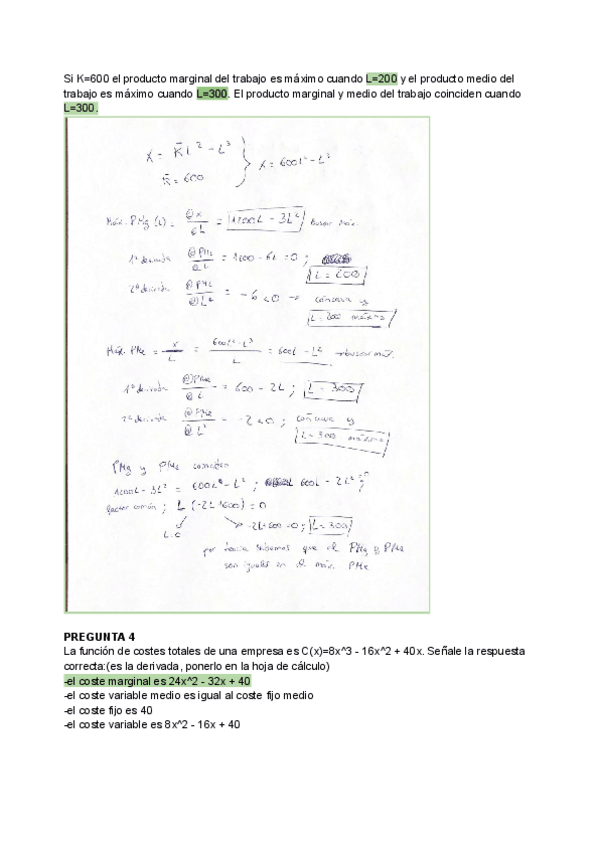 Si K=600 el producto marginal del trabajo es máximo cuando L=200 y el producto medio del
trabajo es máximo cuando L=300. El producto marginal y medio del trabajo coinciden cuando
L=300.
X = K̄L² - L³
K̄ = 600
X = 600L² - L³
Máx. PMg (L) = ∂x/∂L = 1200L - 3L² buscar máx.
1ª derivada ∂PMg/∂L = 1200 - 6L = 0 ; L = 200
2ª derivada ∂PMg/∂L² = -6 < 0 → cóncava y
L = 200 máximo
Máx. PMe = x/L = 600L² - L³/L = 600L - L² → buscar máx.
1ª derivada ∂PMe/∂L = 600 - 2L ; L = 300
2ª derivada ∂PMe/∂L² = -2 < 0 ; cóncava y
L = 300 máximo
PMg y PMe coinciden
1200L - 3L² = 600L - L² ; 600L - 2L² = 0 ;
factor común ; L (-2L + 600) = 0
L = 0
-2L + 600 = 0 ; L = 300
por teoría sabemos que el PMg y PMe
son iguales en el máx. PMe
PREGUNTA 4
La función de costes totales de una empresa es C(x)=8x^3 - 16x^2 + 40x. Señale la respuesta
correcta:(es la derivada, ponerlo en la hoja de cálculo)
-el coste marginal es 24x^2 - 32x + 40
-el coste variable medio es igual al coste fijo medio
-el coste fijo es 40
-el coste variable es 8x^2 - 16x + 40